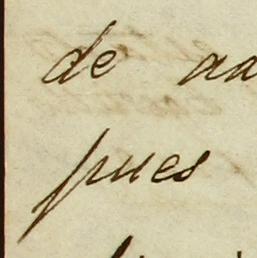 de
pues